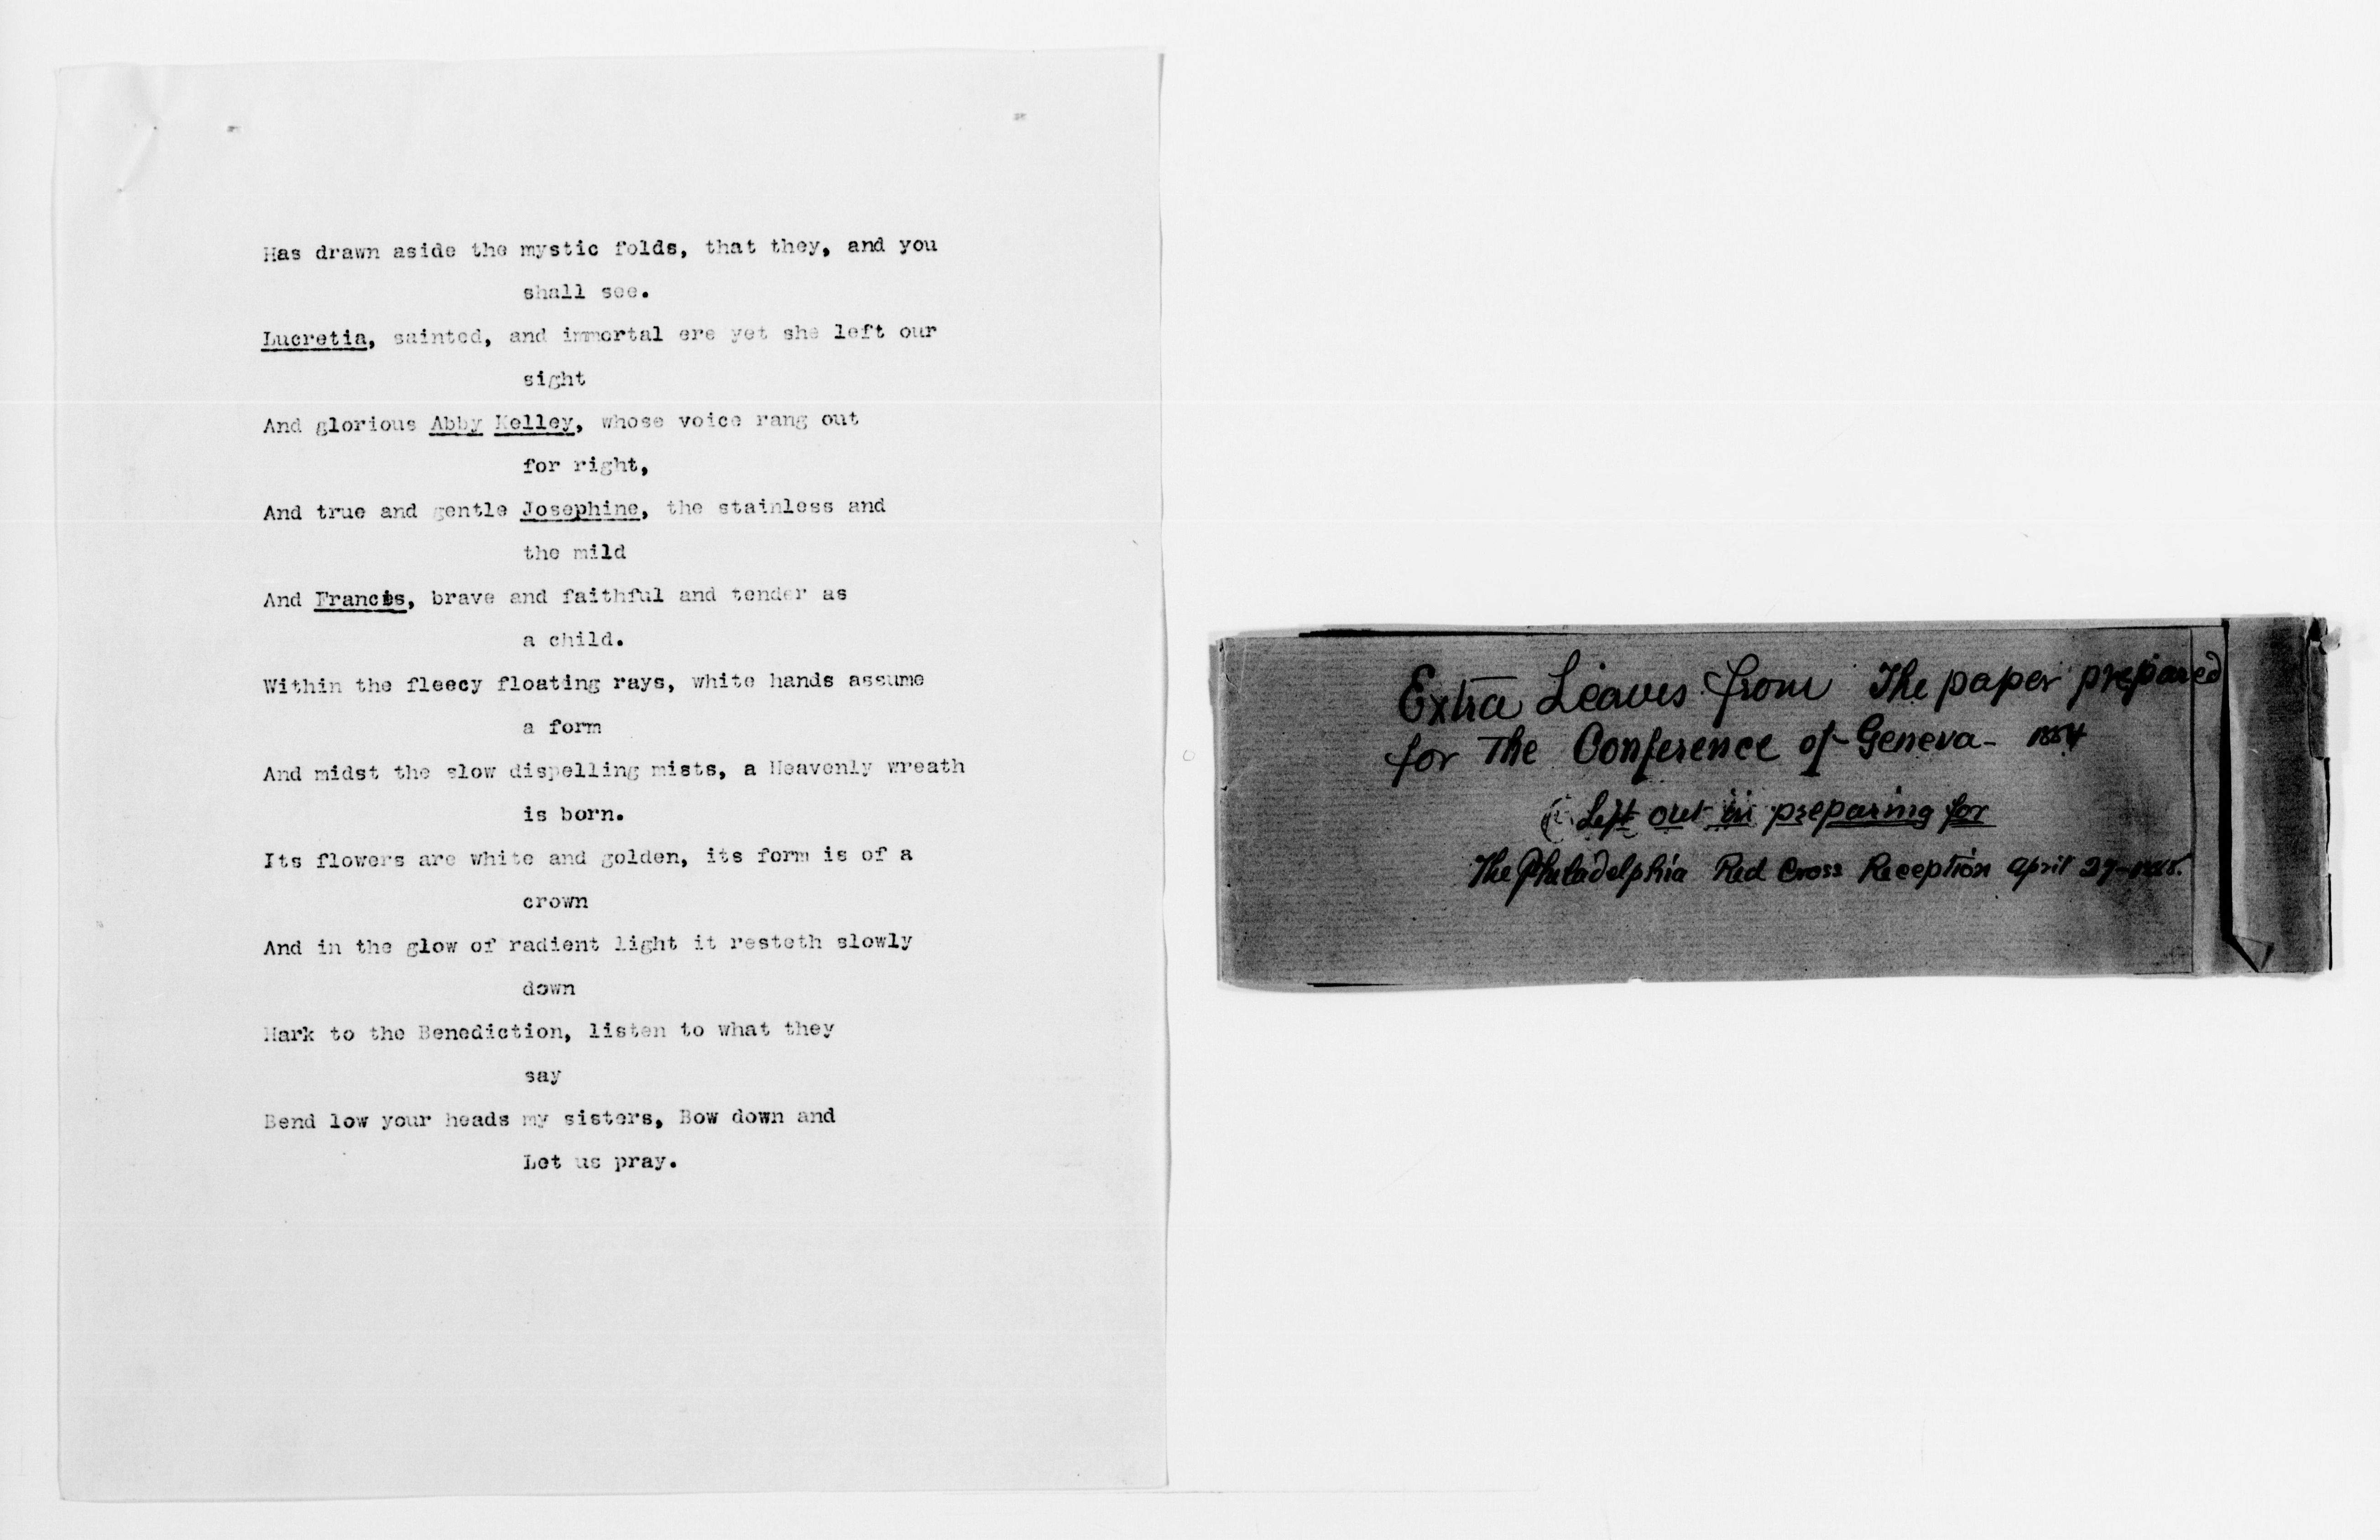 Has drawn aside the mystic folds, that they, and you
shall see.
Lucretia, sainted, and immortal ere yet she left our
sight
And glorious Abby Kelley, whose voice rang out
for right,
And true and gentle Josephine, the stainless and
the mild
And Francis, brave and faithful and tender as
a child.
Within the fleecy floating rays, white hands assume
a form
And midst the slow dispelling mists, a Heavenly wreath
is born.
Its flowers are white and golden, its form is of a
crown
And in the glow of radient light it resteth slowly
down
Hark to the Benediction, listen to what they
say
Bend low your heads my sisters, Bow down and
Let us pray.
Extra Leaves from The paper prepared
for The Conference of Geneva- 1884
(Left out in preparing for
The Philadelphia Red Cross Reception April 27-